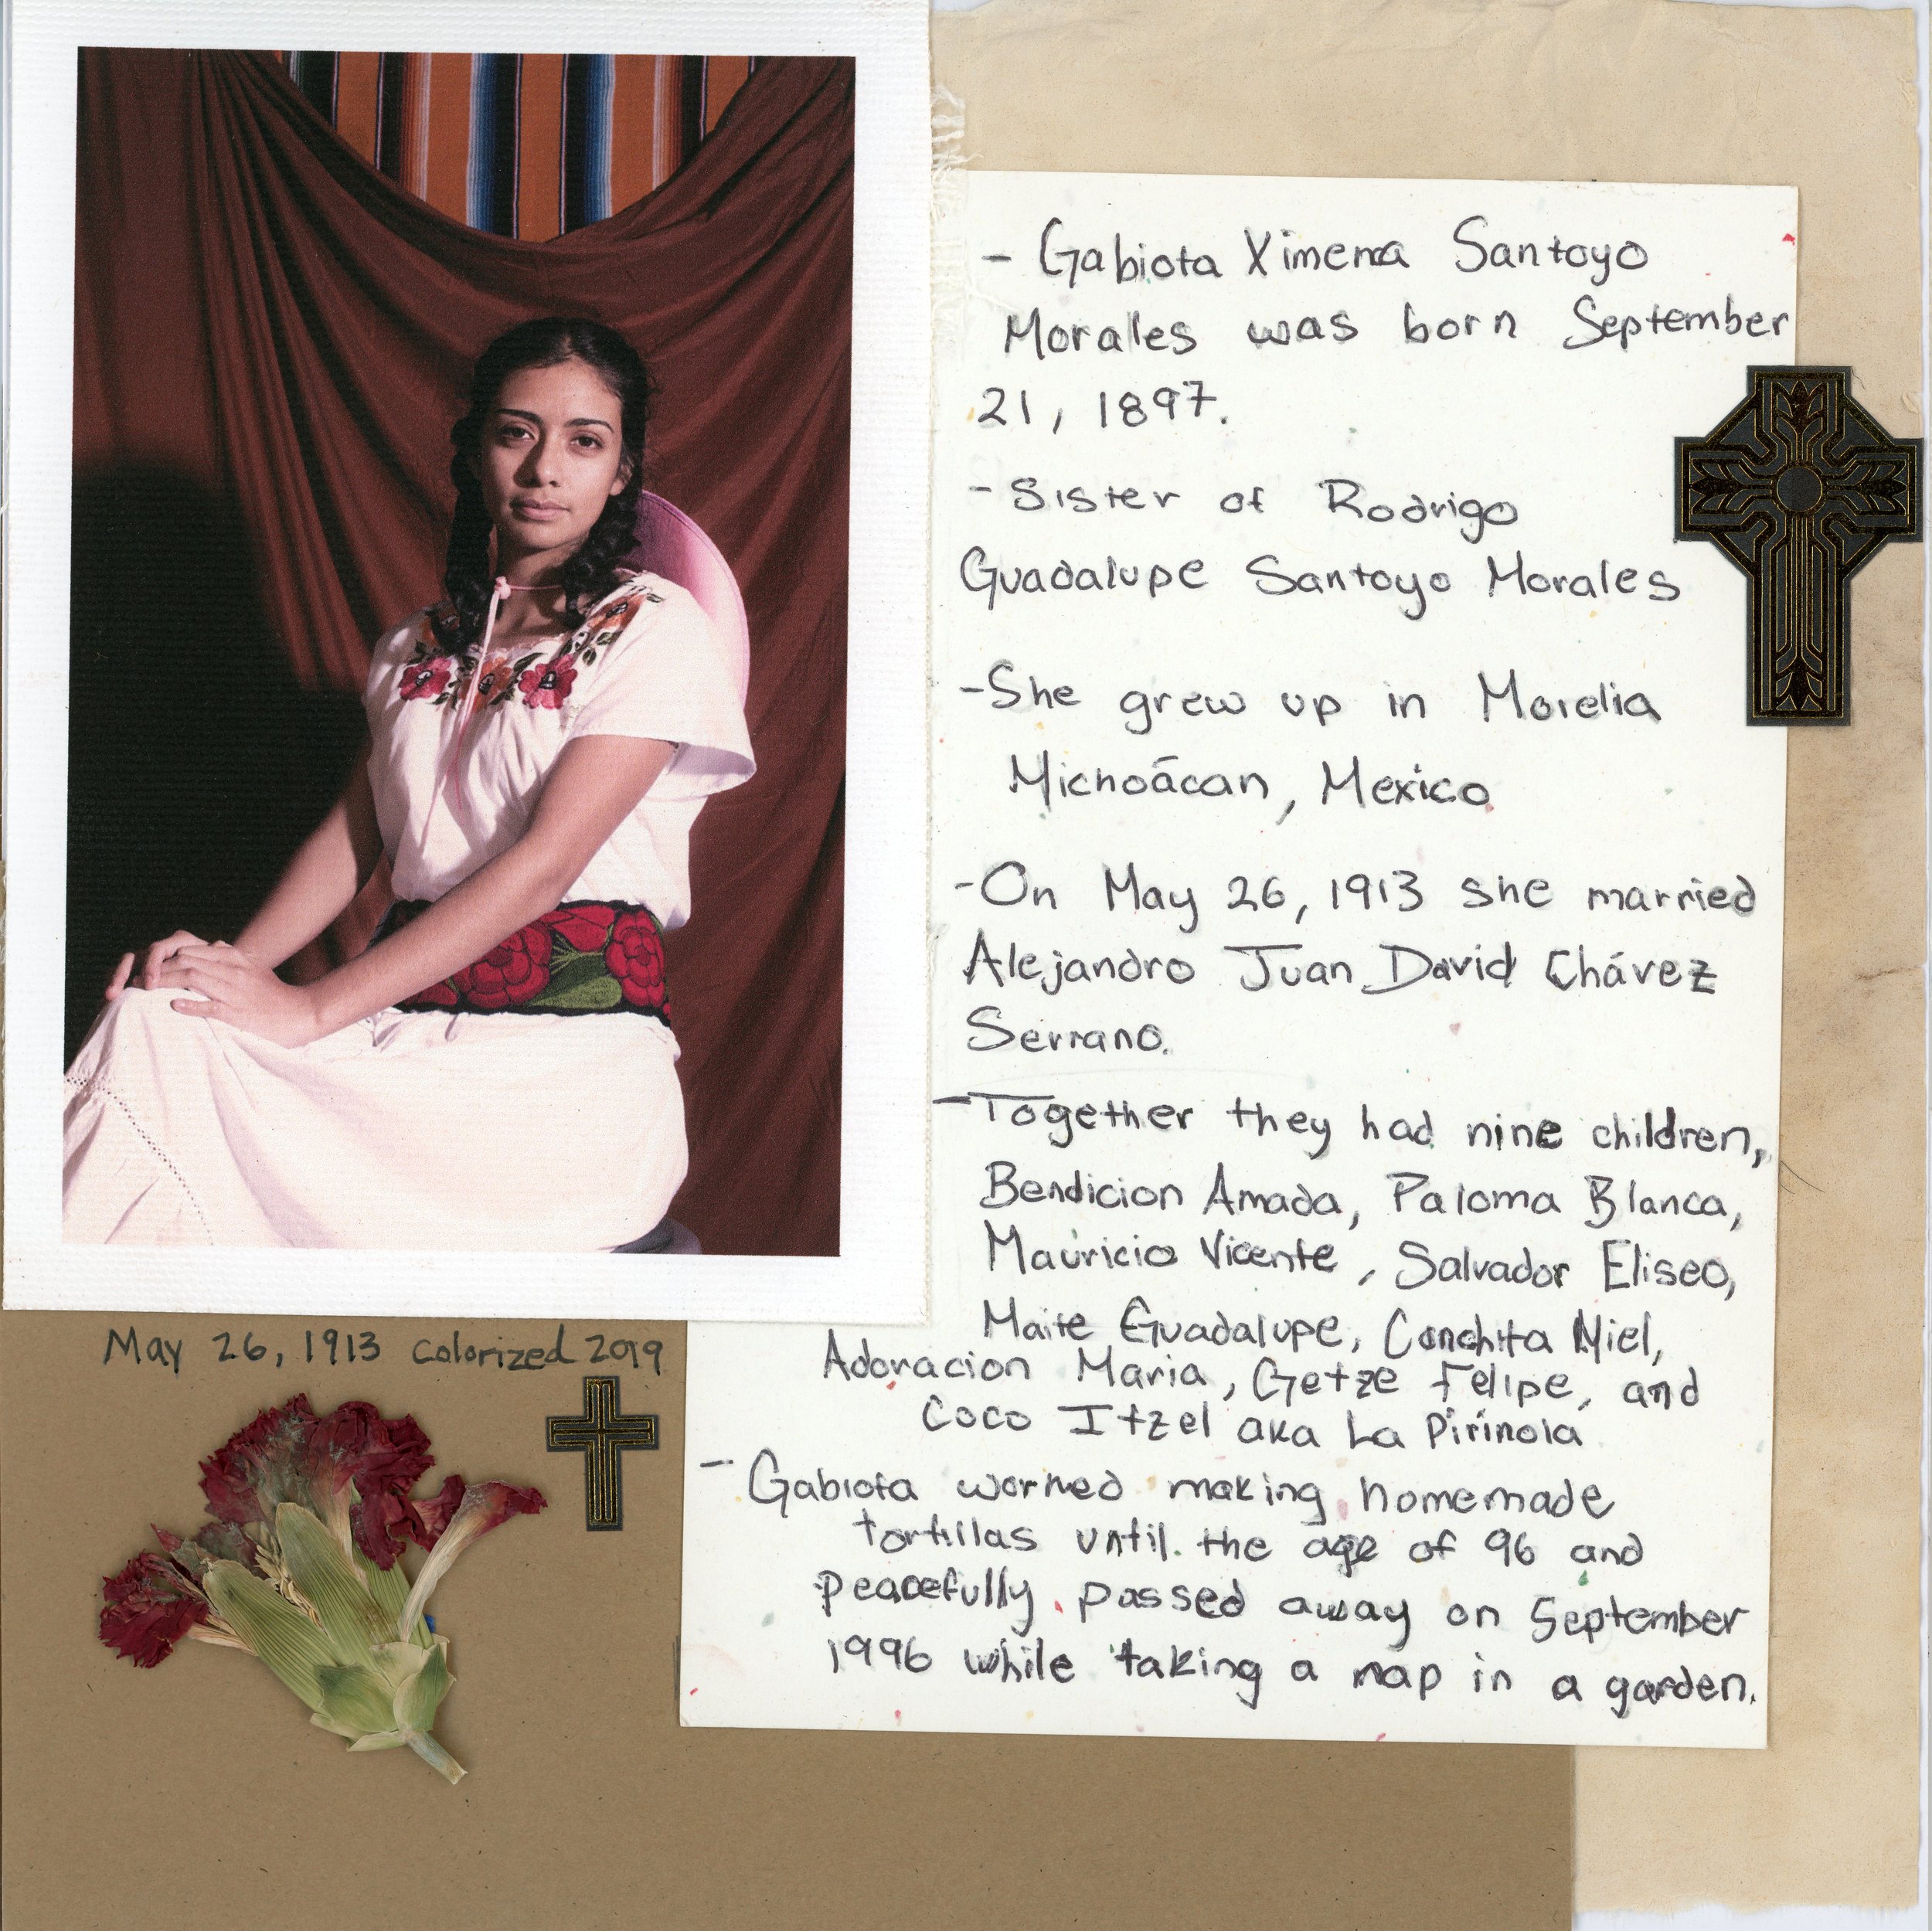 - Gabiota Ximena Santoyo
Morales was born September
21, 1897.
- Sister of Rodrigo
Guadalupe Santoyo Morales
- She grew up in Morelia
Michoácan, Mexico
- On May 26, 1913 she married
Alejandro Juan David Chávez
Serrano.
- Together they had nine children,
Bendicion Amada, Paloma Blanca,
Mauricio Vicente, Salvador Eliseo,
Maite Guadalupe, Conchita Miel,
Adoracion Maria, Getze Felipe, and
Coco Itzel aka La Pirinola
- Gabiota worked making homemade
tortillas until the age of 96 and
peacefully passed away on September
1996 while taking a nap in a garden.
May 26, 1913 colorized 2019